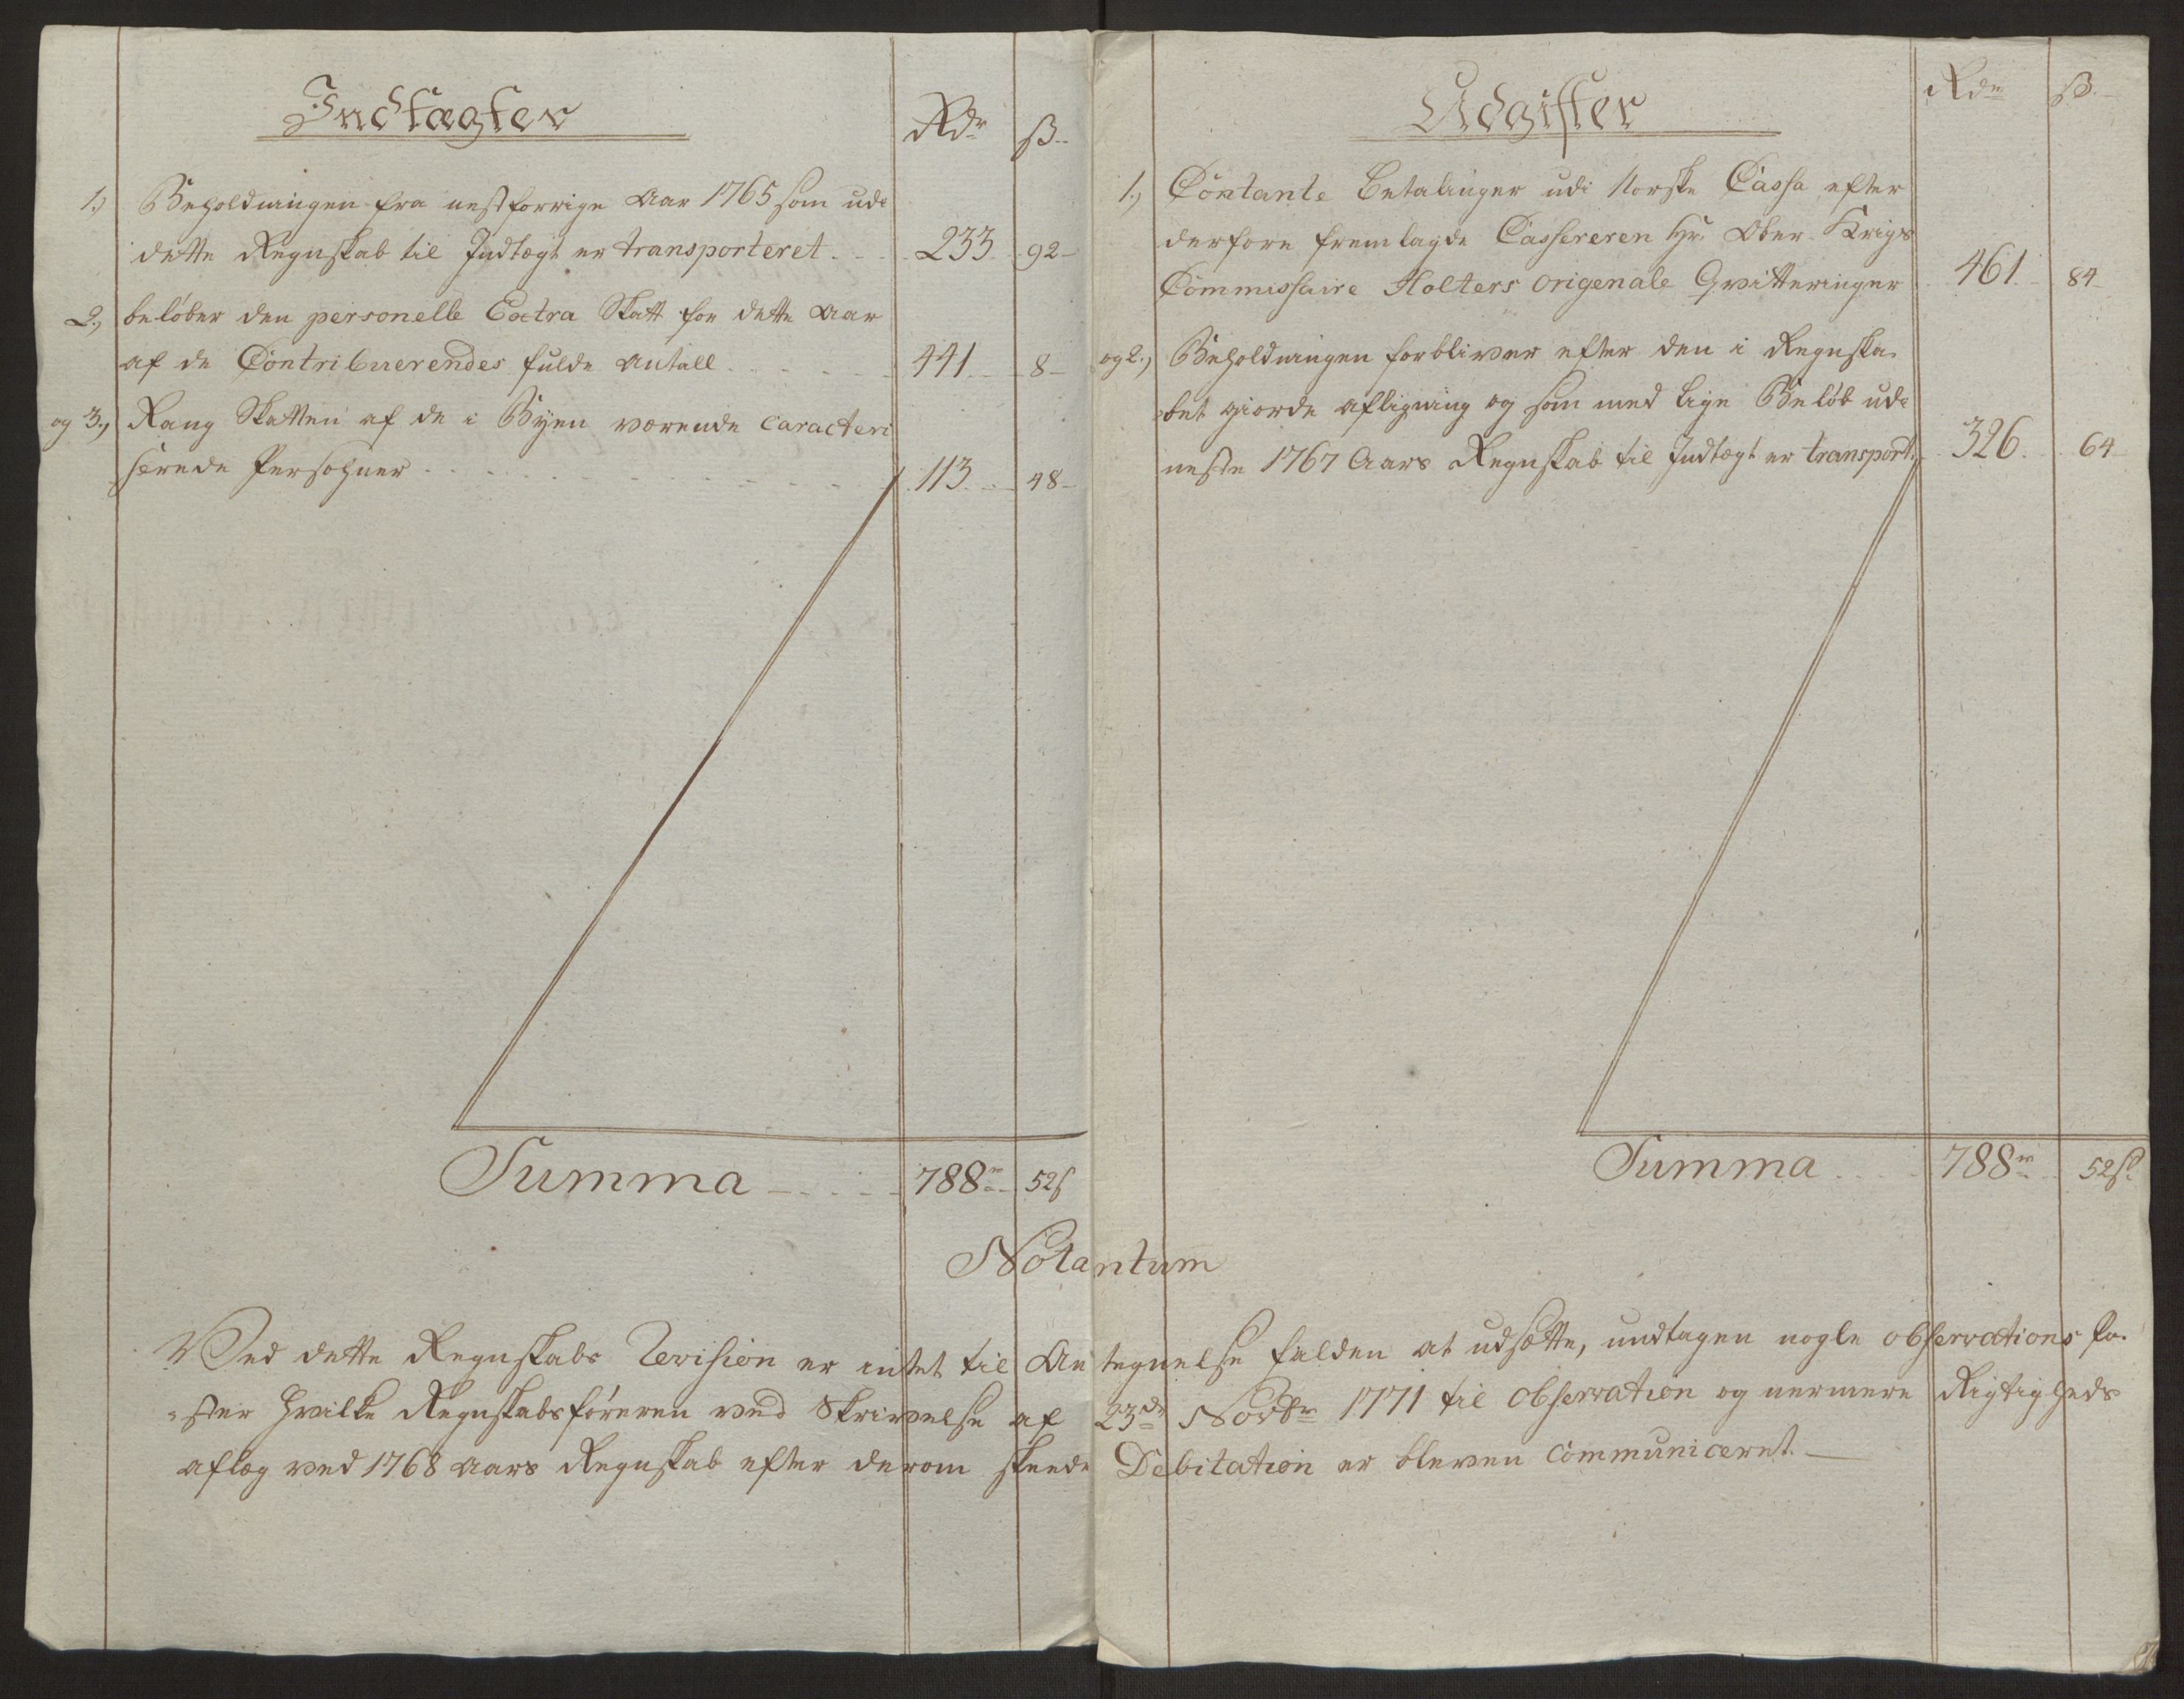 Indtægter
Rdr ß
1.) Beholdningen fra nestforrige Aar 1765 som udi
dette Regnskab til Indtægt er transporteret 233 92
2.) beløber den personelle Extra Skatt for dette Aar
af de Contribuerendes fulde Antall 441 8
og 3.) Rang Skatten af de i Byen værende caracteri
serede Persohner 113 48
Summa 788r 52ß
Udgifter
Rdr ß
1.) Contante Betalinger udi Norske Cassa efter
derfore fremlagde Cassereren Hr Ober Krigs
Commissaire Holters origenale Qvitteringer 461 84
og 2.) Beholdningen forbliver efter den i Regnska
bet giorde afligning og som med lige Beløb udi
neste 1767 Aars Regnskab til Indtægt er transport. 326 64
Summa 788r 52ß
Notantum
Ved dette Regnskabs Revision er intet til Antegnelse falden at udsætte, undtagen nogle observations po
ster hvilke Regnskabsføreren ved Skrivelse af 23de Novbr 1771 til observation og nermere Rigtigheds
aflæg ved 1768 Aars Regnskab efter derom skeede Debitation er bleven communiceret